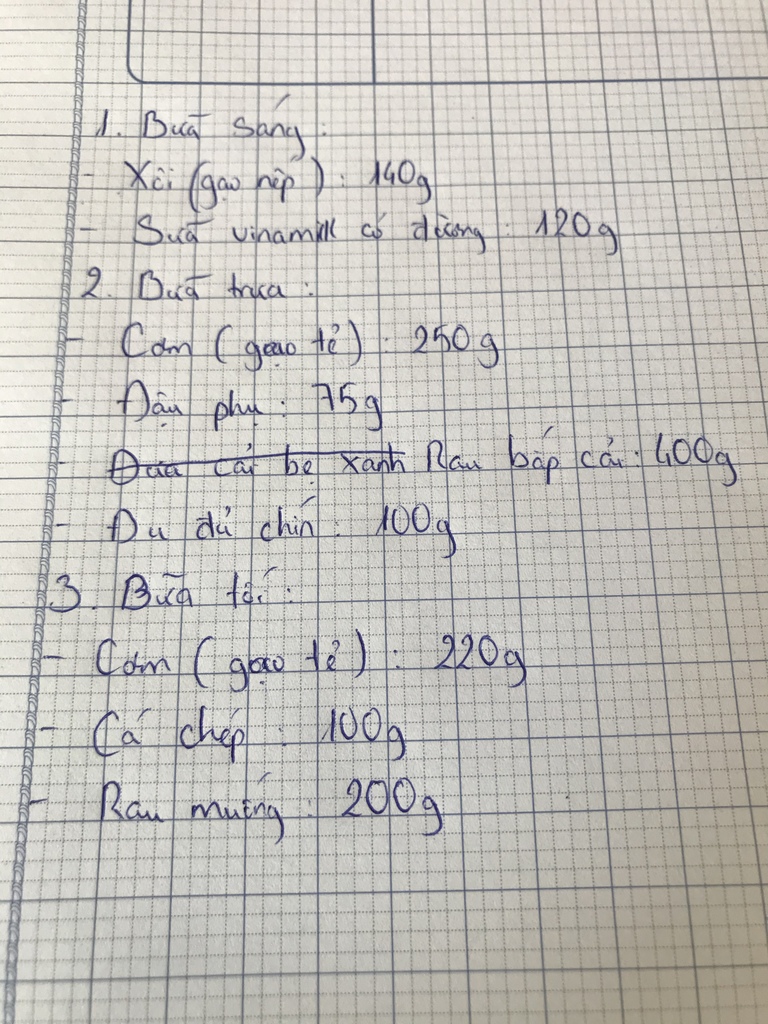 1. Bữa sáng:
- Xôi (gạo nếp): 140g
- Sữa vinamilk có đường: 120g
2. Bữa trưa:
- Cơm (gạo tẻ): 250g
- Đậu phụ: 75g
- Dưa cải bẹ xanh Rau bắp cải: 400g
- Đu đủ chín: 100g
3. Bữa tối:
- Cơm (gạo tẻ): 220g
- Cá chép: 100g
- Rau muống: 200g